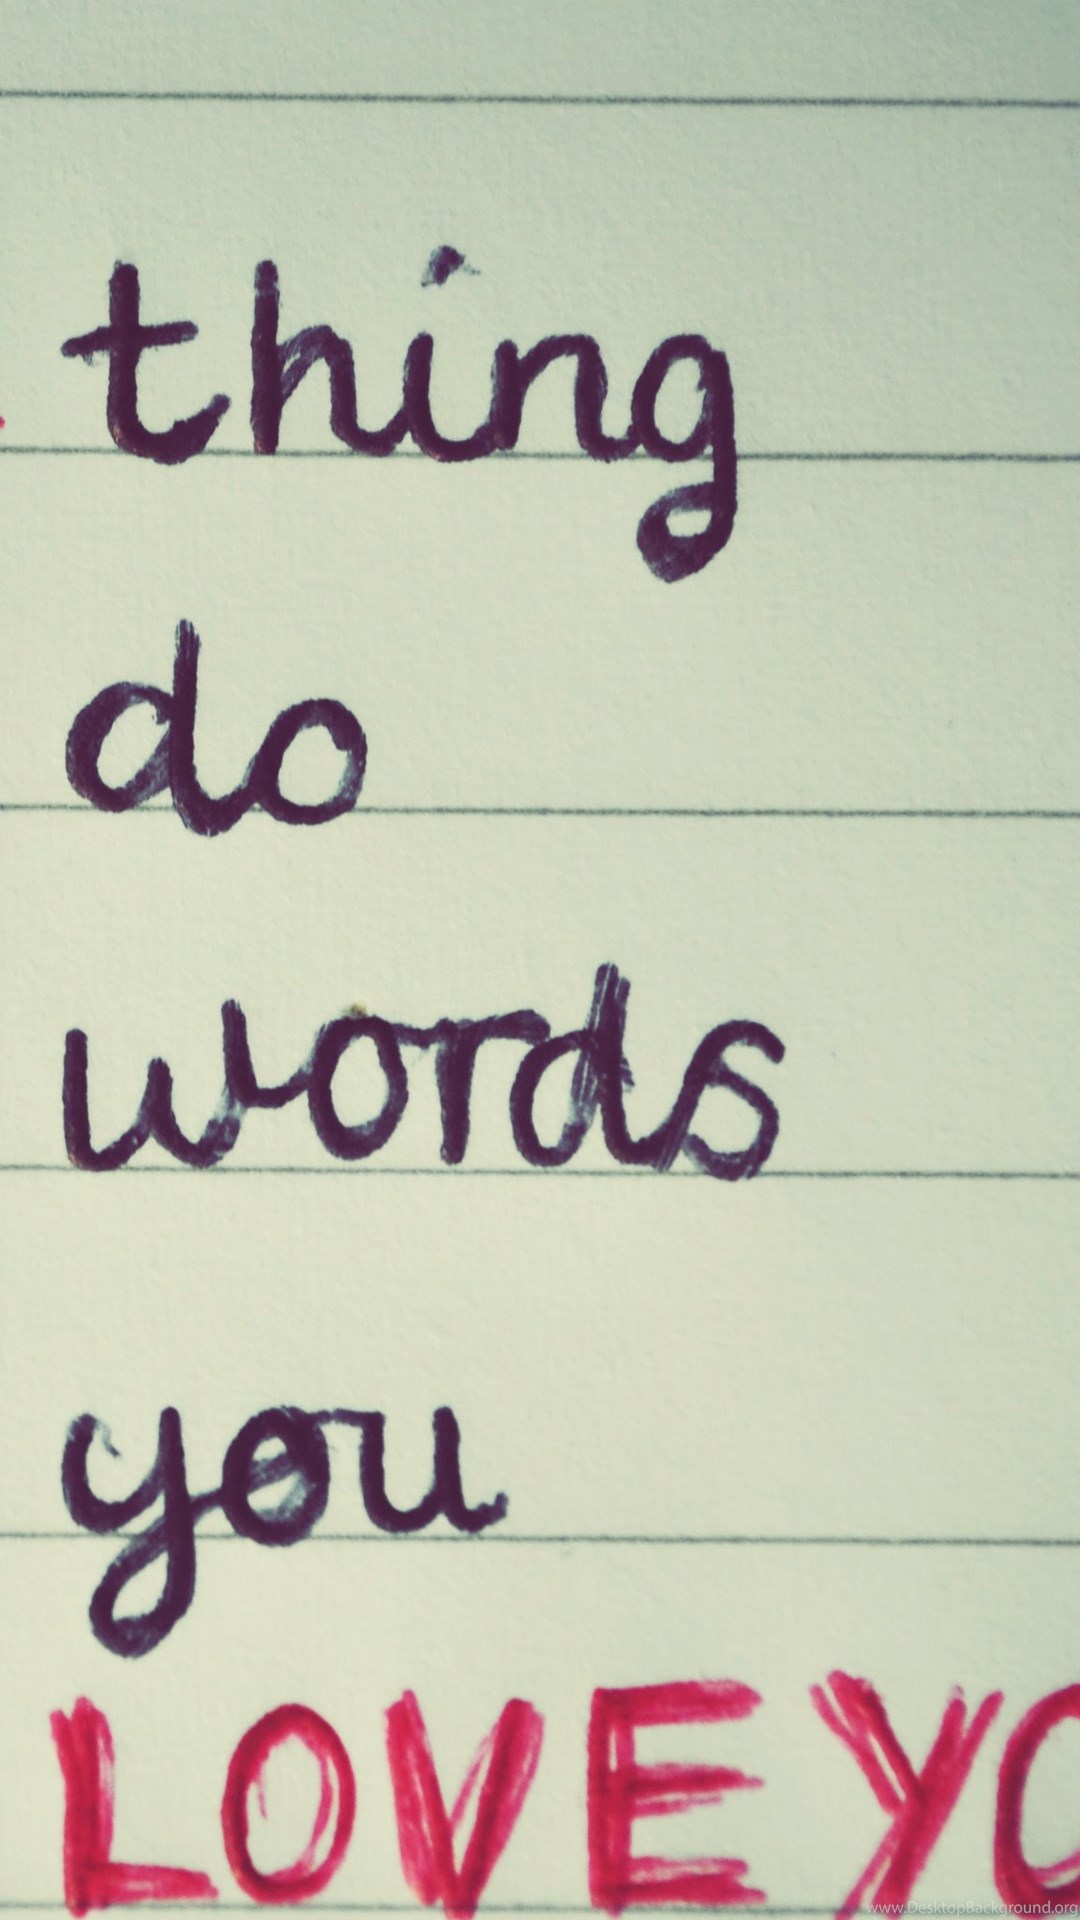 thing
do
words
you
LOVE YO
www.DesktopBackground.org